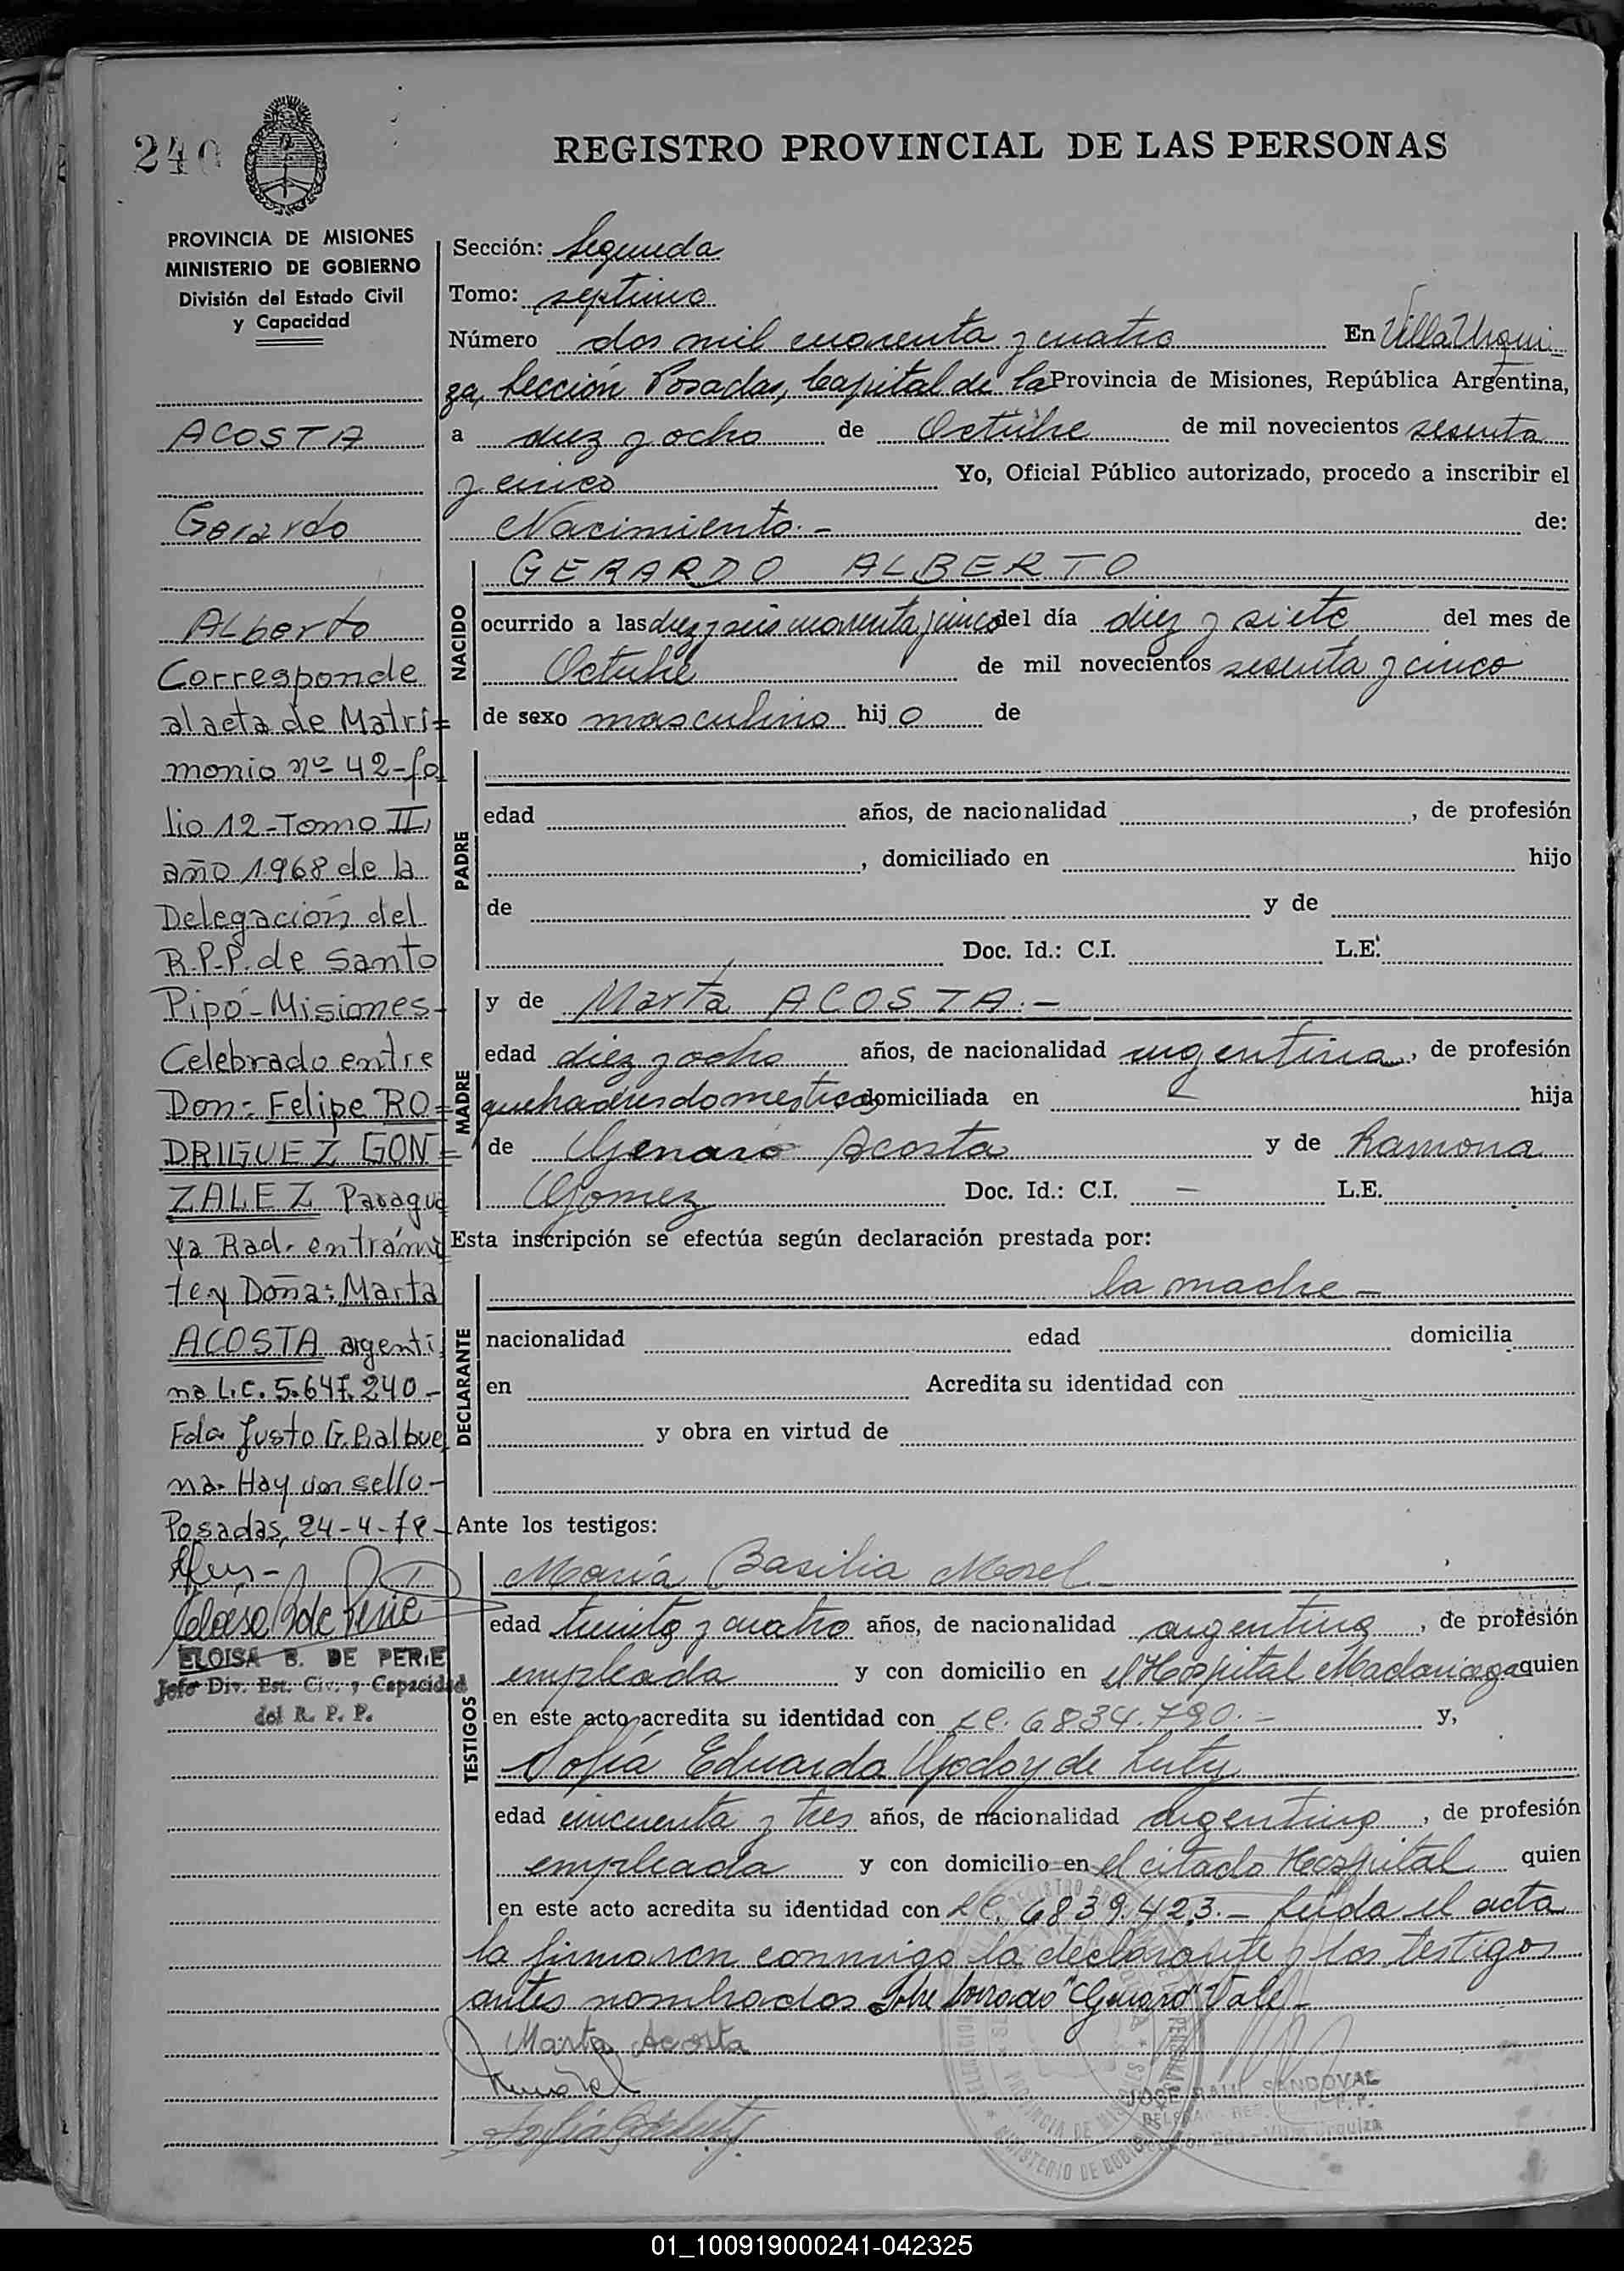 240
REGISTRO PROVINCIAL DE LAS PERSONAS
PROVINCIA DE MISIONES
MINISTERIO DE GOBIERNO
División del Estado Civil
y Capacidad
ACOSTA
Gerardo
Alberto
Corresponde
al acta de Matri=
monio nº 42-fo
lio 12-Tomo II,
año 1968 de la
Delegación del
R.P.P. de Santo
Pipó-Misiones-
Celebrado entre
Don: Felipe RO=
DRIGUEZ GON=
ZALEZ Paragua
ya Rad. en trámi
te y Doña: Marta
ACOSTA argenti
na L.C. 5.647.240-
Fdo. Justo G. Balbue
na. Hay un sello-
Posadas, 24-4-78-
ELOISA B. DE PERIE
Jefe Div. Est. Civ. y Capacidad
del R. P. P.
Sección: Segunda
Tomo: septimo
Número dos mil cuarenta y cuatro En Villa Urqui-
za, Sección Posadas, Capital de la Provincia de Misiones, República Argentina,
a diez y ocho de Octubre de mil novecientos sesenta
y cinco Yo, Oficial Público autorizado, procedo a inscribir el
Nacimiento.- de:
NACIDO
GERARDO ALBERTO
ocurrido a las diez y seis cuarenta y cinco del día diez y siete del mes de
Octubre de mil novecientos sesenta y cinco
de sexo masculino hijo de
PADRE
edad años, de nacionalidad , de profesión
, domiciliado en hijo
de y de
Doc. Id.: C.I. L.E.
MADRE
y de Marta ACOSTA.-
edad diez y ocho años, de nacionalidad argentina, de profesión
quehaceres domesticos domiciliada en hija
de Genaro Acosta y de Ramona
Gomez Doc. Id.: C.I. — L.E.
Esta inscripción se efectúa según declaración prestada por:
DECLARANTE
la madre -
nacionalidad edad domicilia
en Acredita su identidad con
y obra en virtud de
Ante los testigos:
TESTIGOS
María Basilia Morel
edad treinta y cuatro años, de nacionalidad argentina, de profesión
empleada y con domicilio en el Hospital Madariaga quien
en este acto acredita su identidad con LC. 6834.790.- y,
Sofía Eduarda Godoy de Luty
edad cincuenta y tres años, de nacionalidad argentina, de profesión
empleada y con domicilio en el citado Hospital quien
en este acto acredita su identidad con LC. 6839.423.- Leida el acta
la firmaron conmigo la declarante y los testigos
antes nombrados Sobre borrado "Genaro" Vale-
Marta Acosta
JOSE RAUL SANDOVAL
01_100919000241-042325